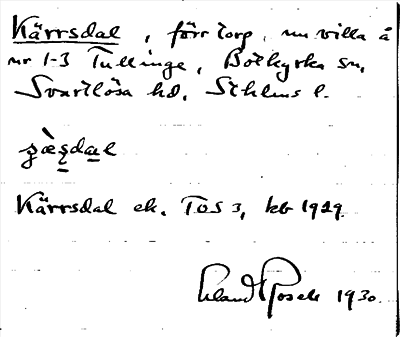 Kärrsdal, förr torp, nu villa å
nr 1-3 Tullinge, Botkyrka sn,
Svartlösa hd, Sthlms l.
Kärrsdal ek. TOS 3, kb 1929
Erland Rosell 1930.